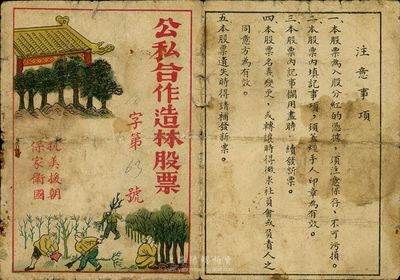 公私合作造林股票
字第63號
抗美援朝
保家衛國
注意事項
一、本股票為入股分紅的憑據，須注意保存、不可污損。
二、本股票內填記事項，須蓋經手人印章為有效。
三、本股票內記事欄用盡時，續發新票。
四、本股票名義變更，或轉讓時得徵求社員會或負責人之
同意方為有效。
五、本股票遺失時得請補發新票。